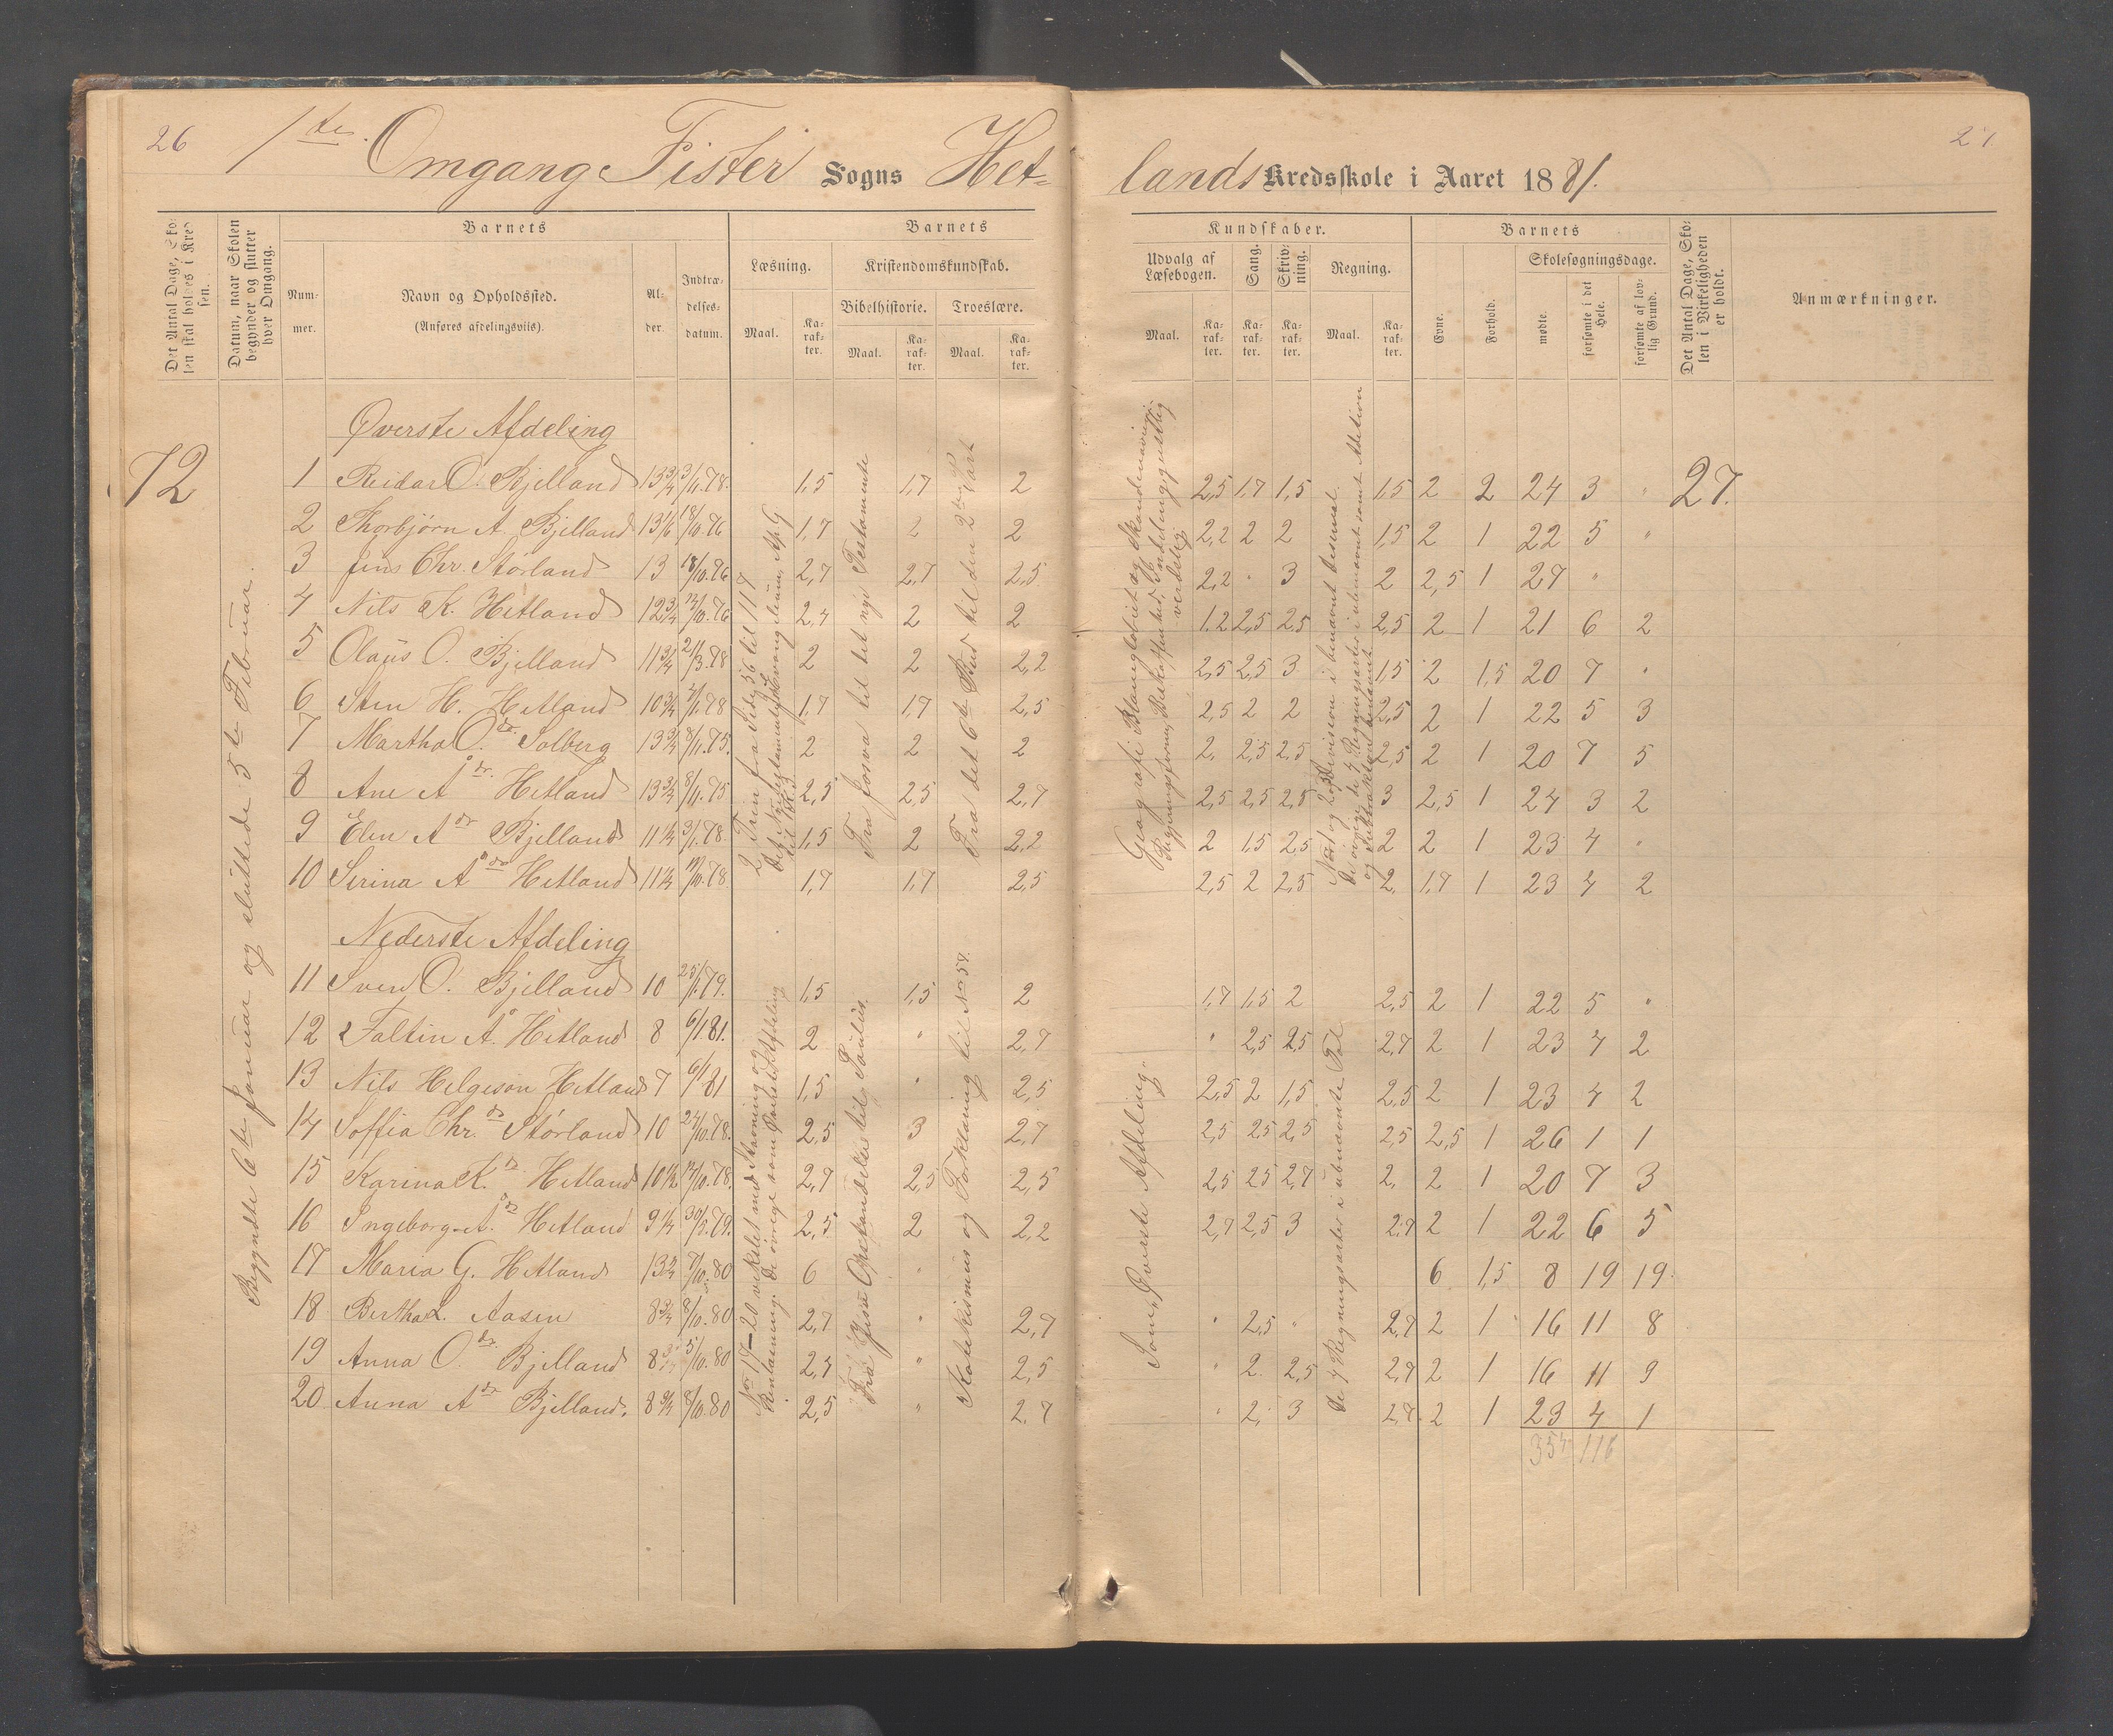 26
1ste Omgang Fister Sogns Het=
lands Kredsskole i Aaret 1881.
27
Det Antal Dage, Sko=
len skal holdes i Kred=
sen.
Datum, naar Skolen
begynder og slutter
hver Omgang.
Barnets
Num=
mer.
Navn og Opholdssted.
(Anføres afdelingsviis).
Al=
der.
Indtræ=
delses=
datum.
Barnets
Læsning.
Kristendomskundskab.
Maal.
Ka=
rak=
ter.
Bibelhistorie.
Troeslære.
Maal.
Ka=
rak=
ter.
Maal.
Ka=
rak=
ter.
Kundskaber.
Udvalg af
Læsebogen.
Sang.
Skriv=
ning.
Regning.
Maal.
Ka=
rak=
ter.
Ka=
rak=
ter.
Ka=
rak=
ter.
Maal.
Ka=
rak=
ter.
Barnets
Evne.
Forhold.
Skolesøgningsdage.
mødte.
forsømte i det
Hele.
forsømte af lov=
lig Grund.
Det Antal Dage, Sko=
len i Virkeligheden
er holdt.
Anmærkninger.
72
Begyndte 6te Januar og sluttede 5te Februar.
Øverste Afdeling
1 Reidar O. Bjelland 13 3/4 3/11.78. 1,5 1,7 2 2,5 1,7 1,5 1,5 2 2 24 3 " 27.
2 Thorbjørn A. Bjelland 13 1/6 18/10.76 1,7 2 2 2,2 2 2 1,5 2 1 22 5 "
3 Jens Chr. Størland 13 18/10.76 2,7 2,7 2,5 2,2 " 3 2 2,5 1 27 "
4 Nils K. Hetland 12 3/4 2,7 2 2 1.2 2,5 2,5 2,5 2 1 21 6 2
5 Olaus O. Bjelland 11 3/4 21/3.78 2 2 2,2 2,5 2,5 3 1,5 2 1,5 20 7 "
6 Sten H. Hetland 10 3/4 1,7 1,7 2,5 2,5 2 2 2,5 2 1 22 5 3
7 Martha O. dr. Solberg 13 3/4 8/11.75. 2 2 2 2. 2,5 2,5 2,5 2 1 20 7 5
8 Ane A dr. Hetland 13 3/4 8/11.75 2,5 2,5 2,7 2,5 2,5 2,5 3 2,5 1 24 3 2
9 Elen A dr Bjelland 11 1/4 3/1.78. 1,5 2 2,2 2 1,5 2,5 2 2 1 23 4 "
10 Serina A dr Hetland 11 1/4 1,7 1,7 2,5 2,5 2 2,5 2. 1,7 1 23 4 2
2 Trin fra Side 56 til 117
Det Nye Testamente
Fra Josva til det nye Testamente
Fra det 6te Bud til den 2den Part
Geografi
Regjeringsformer, Beskaffenhed, Inddeling
verdslig
og Subtraktion
Nederste Afdeling
11 Sven O. Bjelland 10 25/1.79. 1,5 1,5 2 1,7 1,5 2 2,5 2 1 22 5 "
12 Faltin A. Hetland 8 6/1.81. 2 " 2,7 " 2,5 2,5 2,7 2 1 23 4 2
13 Nils Helgeson Hetland 7 6/1 81 1,5 " 2,5 2,5 2 1,5 2,5 2 1 23 4 2
14 Soffia Chr. dr Størland 10 24/10.78. 2,5 3 2,7 2,5 2,5 2,5 2,5 2,5 1 26 1 1
15 Karina K. dr Hetland 10 1/2 2,7 2,5 2,5 2,5 2,5 2,7 2. 2 1 20 7 3
16 Ingeborg A. dr Hetland 9 1/4 2,5 2 2,2 2,7 2,5 3 2,7 2 1 22 6 5
17 Maria G. Hetland 13 3/4 7/10.80 6 " 6 1,5 8 19 19.
18 Bertha L. Aasen 8 3/4 8/10.80 2,7 " 2,7 " 2,5 " 2,7 2 1 16 11 8
19 Anna O. dr. Bjelland 5/10.80 2,7 " 2,5 " 2. 2,5 2,7 2 1 16 11 9
20 Anna A dr Bjelland. 8 3/4 8/10.80 2,5 " 2,7 " 2. 3 2,7. 2 1 23 4 1
No 17–20 vekslet med Stavning og
Renlæsning. De øvrige som Øverste Afdeling
Fra Jesu Opstandelse til Paulus.
Katekismus og Forklaring til No 58.
Som „Øverste Afdeling"
De 4 Regningsarter i ubenævnte Tal
354 116